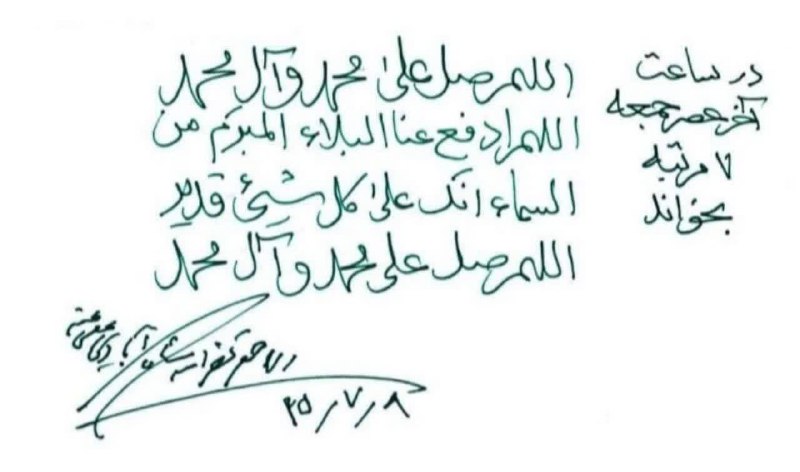 اللهم صل علیٰ محمد وآل محمد
اللهم ادفع عنا البلاء المبرم من
السماء انک علیٰ کل شیئ قدیر
اللهم صل علی محمد وآل محمد
در ساعت
آخر عصر جمعه
۷ مرتبه
بخواند
الاحقر
۳۵/۷/۸